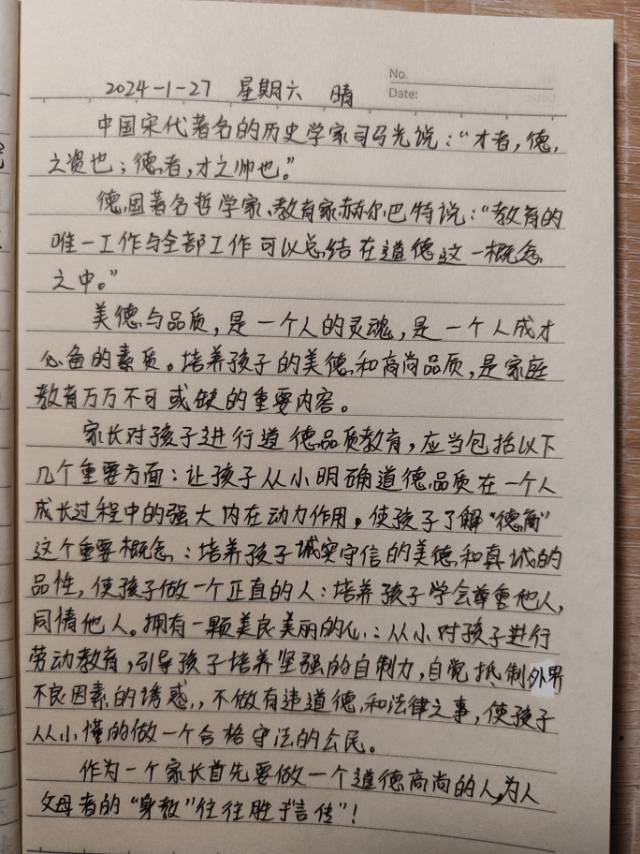 No.
2024-1-27 星期六 晴
Date:
中国宋代著名的历史学家司马光说:“才者,德,
之资也;德者,才之帅也。”
德国著名哲学家、教育家赫尔巴特说:“教育的
唯一工作与全部工作可以总结在道德这一概念
之中。”
美德与品质,是一个人的灵魂,是一个人成才
必备的素质。培养孩子的美德和高尚品质,是家庭
教育万万不可或缺的重要内容。
家长对孩子进行道德品质教育,应当包括以下
几个重要方面:让孩子从小明确道德品质在一个人
成长过程中的强大内在动力作用。使孩子了解“德商”
这个重要概念:培养孩子诚实守信的美德和真诚的
品性,使孩子做一个正直的人:培养孩子学会尊重他人,
同情他人。拥有一颗美良美丽的心:从小对孩子进行
劳动教育,引导孩子培养坚强的自制力,自觉抵制外界
不良因素的诱惑,不做有违道德和法律之事,使孩子
从小懂的做一个合格守法的公民。
作为一个家长首先要做一个道德高尚的人,为人
父母者的“身教”往往胜于“言传”!